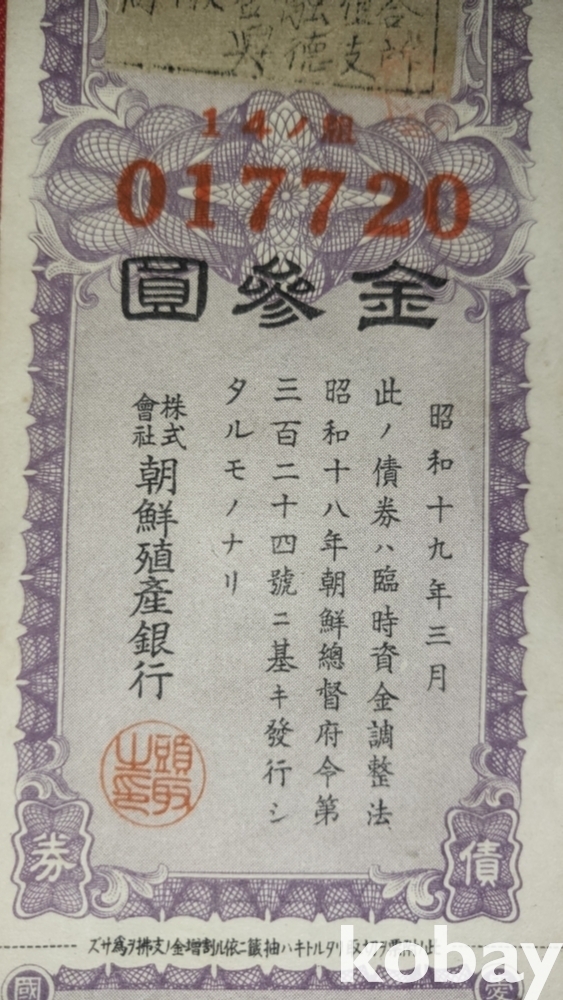 14ノ組
017720
金參圓
昭和十九年三月
此ノ債券ハ臨時資金調整法
昭和十八年朝鮮總督府令第
三百二十四號ニ基キ發行シ
タルモノナリ
株式會社朝鮮殖產銀行
頭取之印
債券
タルトキハ抽籤ニ依ル割增金ノ支拂ヲ爲サズ
kobay
國